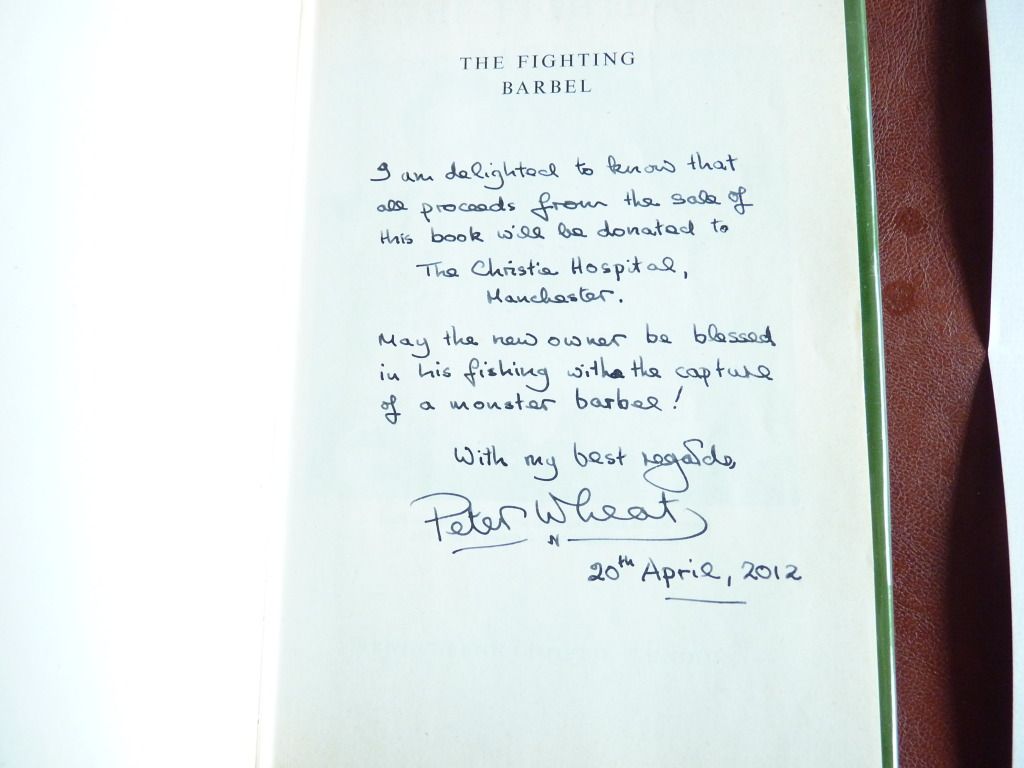 THE FIGHTING
BARBEL
I am delighted to know that
all proceeds from the sale of
this book will be donated to
The Christie Hospital,
Manchester.
May the new owner be blessed
in his fishing with the capture
of a monster barbel!
With my best regards,
Peter Wheat
20th April, 2012